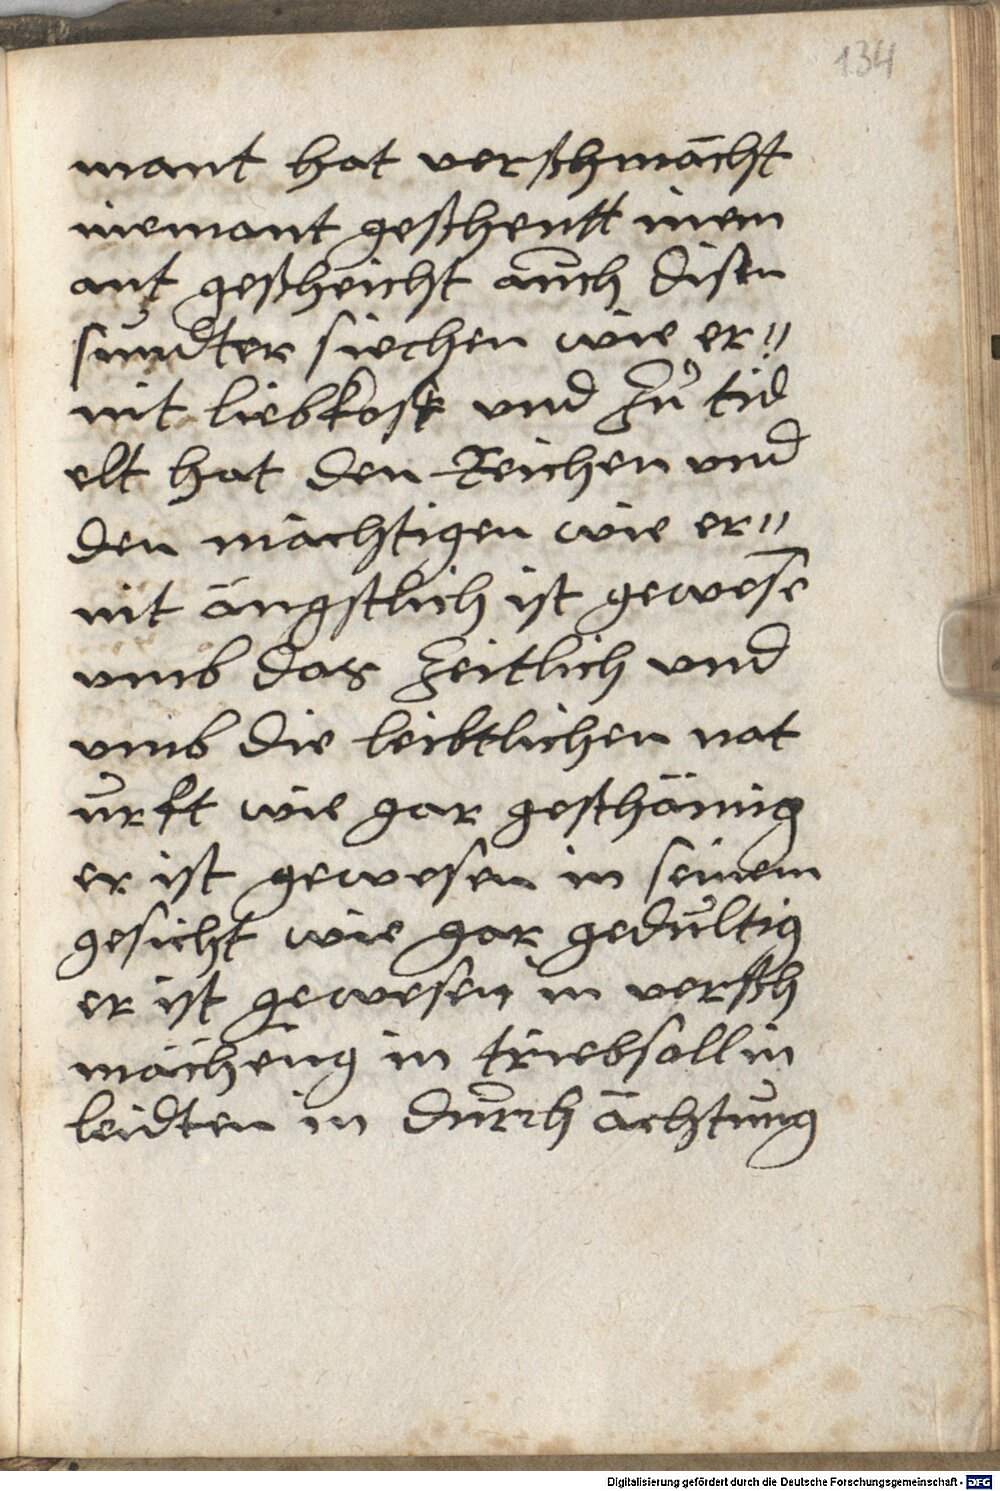 134
mant hat verschmächt
niemant geschentt niem
ant gescheicht aůch disen
sundter siechen wie er"
nit liebkost und Zů tid
elt hat den Reichen und
den mächtigen wie er"
nit ängstlich ist gewese
vmb das Zeitlich und
vmb die leibtlichen not
urft wie gar geschämig
er ist gewesen in seinem
gesicht wie gar gedultig
er ist gewesen in versch
mächeing in triebsall in
leidten in durch ächtung
Digitalisierung gefördert durch die Deutsche Forschungsgemeinschaft - DFG